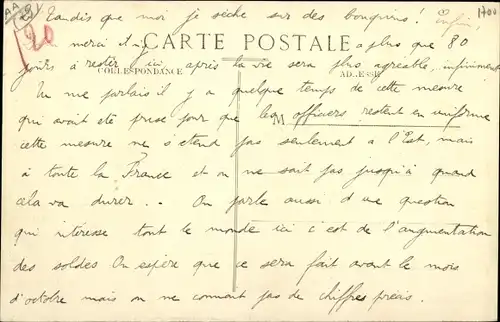 Tandis que moi je sèche sur des bouquins ! Enfin,
merci il n'y a plus que 80
CARTE POSTALE
jours à rester ici après la vie sera plus agréable, infiniment
CORRESPONDANCE
ADRESSE
Tu me parlais il y a quelque temps de cette mesure
qui avait été prise pour que les officiers restent en uniforme
M
cette mesure ne s'étend pas seulement à l'Est, mais
à toute la France et on ne sait pas jusqu'à quand
cela va durer . . On parle aussi d'une question
qui intéresse tout le monde ici c'est de l'augmentation
des soldes On espère que ce sera fait avant le mois
d'octobre mais on ne connait pas de chiffres précis.